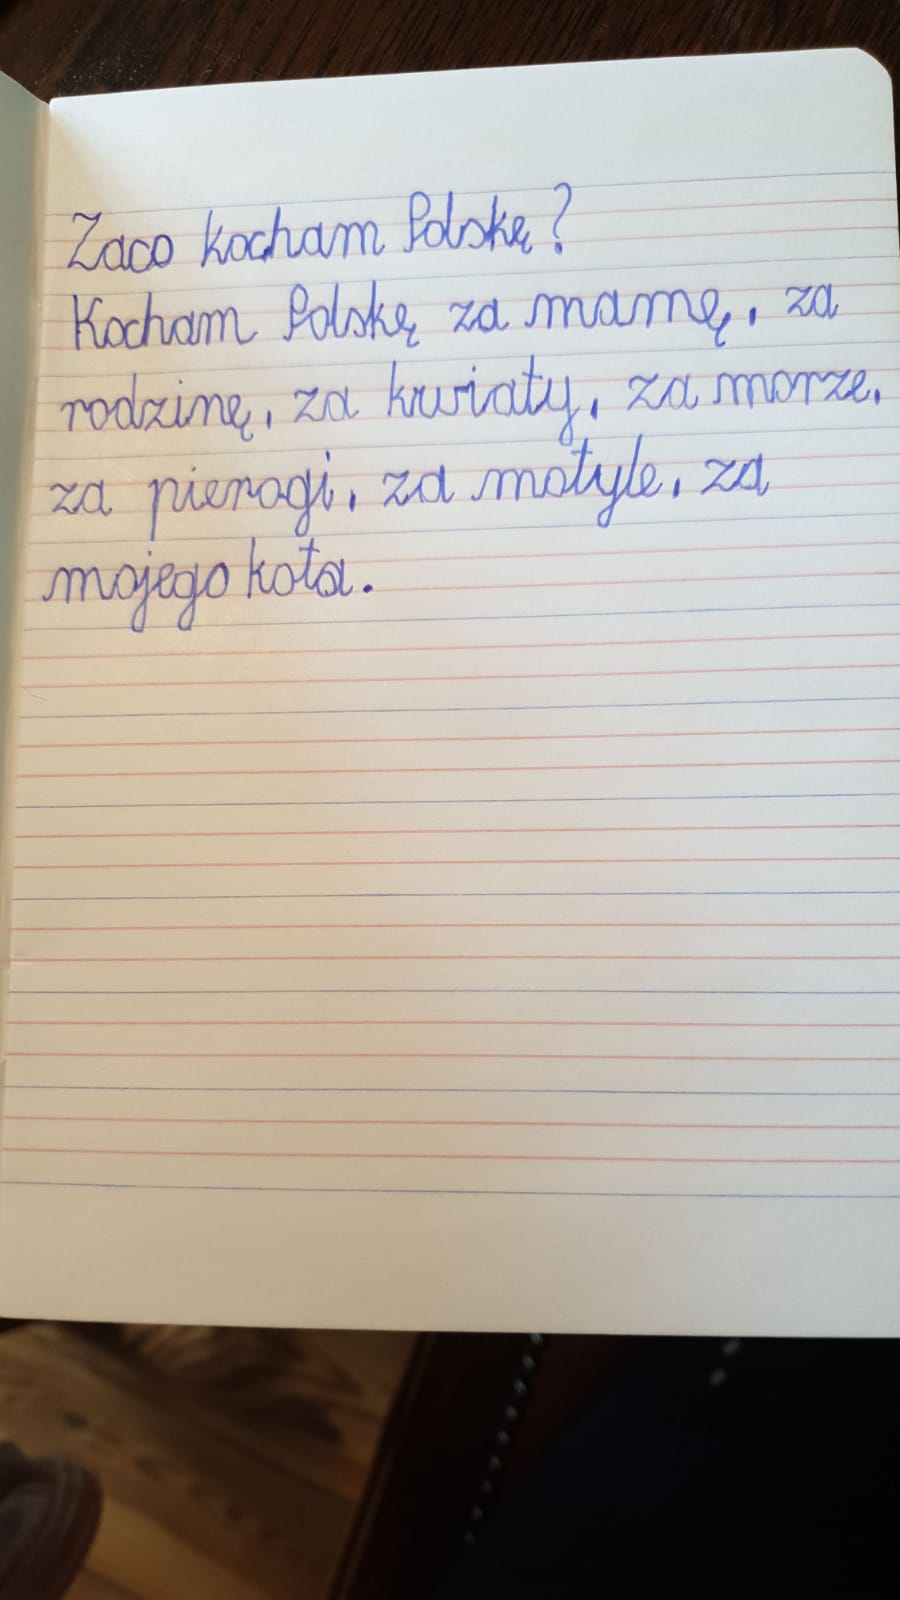 Zaco kocham Polskę?
Kocham Polskę za mamę, za
rodzinę, za kwiaty, za morze,
za pierogi, za motyle, za
mojego kota.